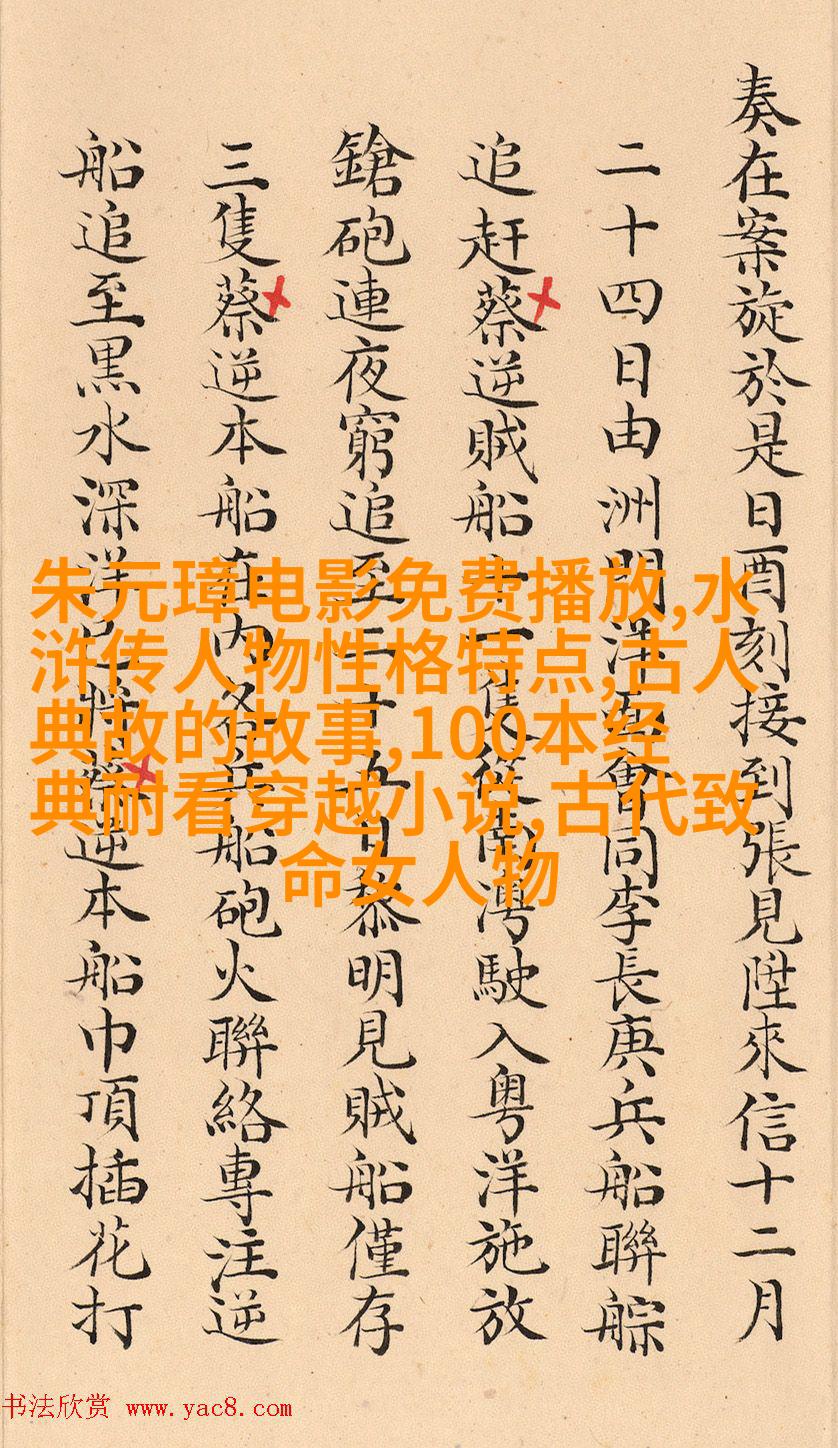 奏在案旋於是日酉刻接到張見陞來信十二月
二十四日由洲門洋面會同李長庚兵船聯䑸
追赶蔡逆賊船十一隻從南澳駛入粤洋施放
鎗砲連夜窮追至二十五日黎明見賊船僅存
三隻蔡逆本船在內各兵船砲火聯絡專注逆
船追至黒水深洋已將蔡逆本船巾頂插花打
朱元璋电影免费播放,水
浒传人物性格特点,古人
典故的故事,100本经
典耐看穿越小说,古代致
命女人物
书法欣赏 www.yac8.com